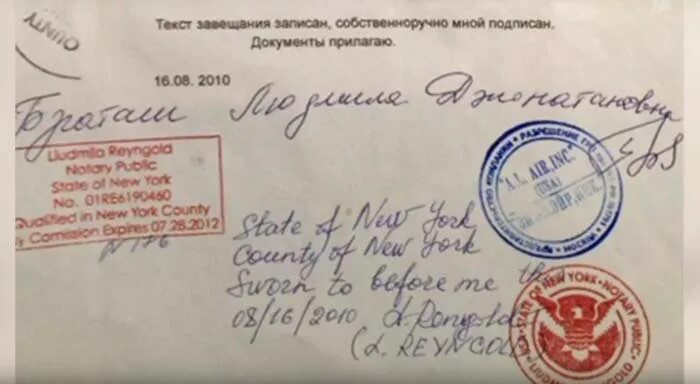 UNTY
Текст завещания записан, собственноручно мной подписан.
Документы прилагаю.
16.08. 2010
Людмила Джонатановна
Liudmila Reyngold
Notary Public
State of New York
No. 01RE6190460
Qualified in New York County
Comission Expires 07.28.2012
State of New York
County of New York
Sworn to before me
08/16/2010
"A.L. AIR, INC."
(USA)
МОСКВА
STATE OF NEW YORK • NOTARY PUBLIC